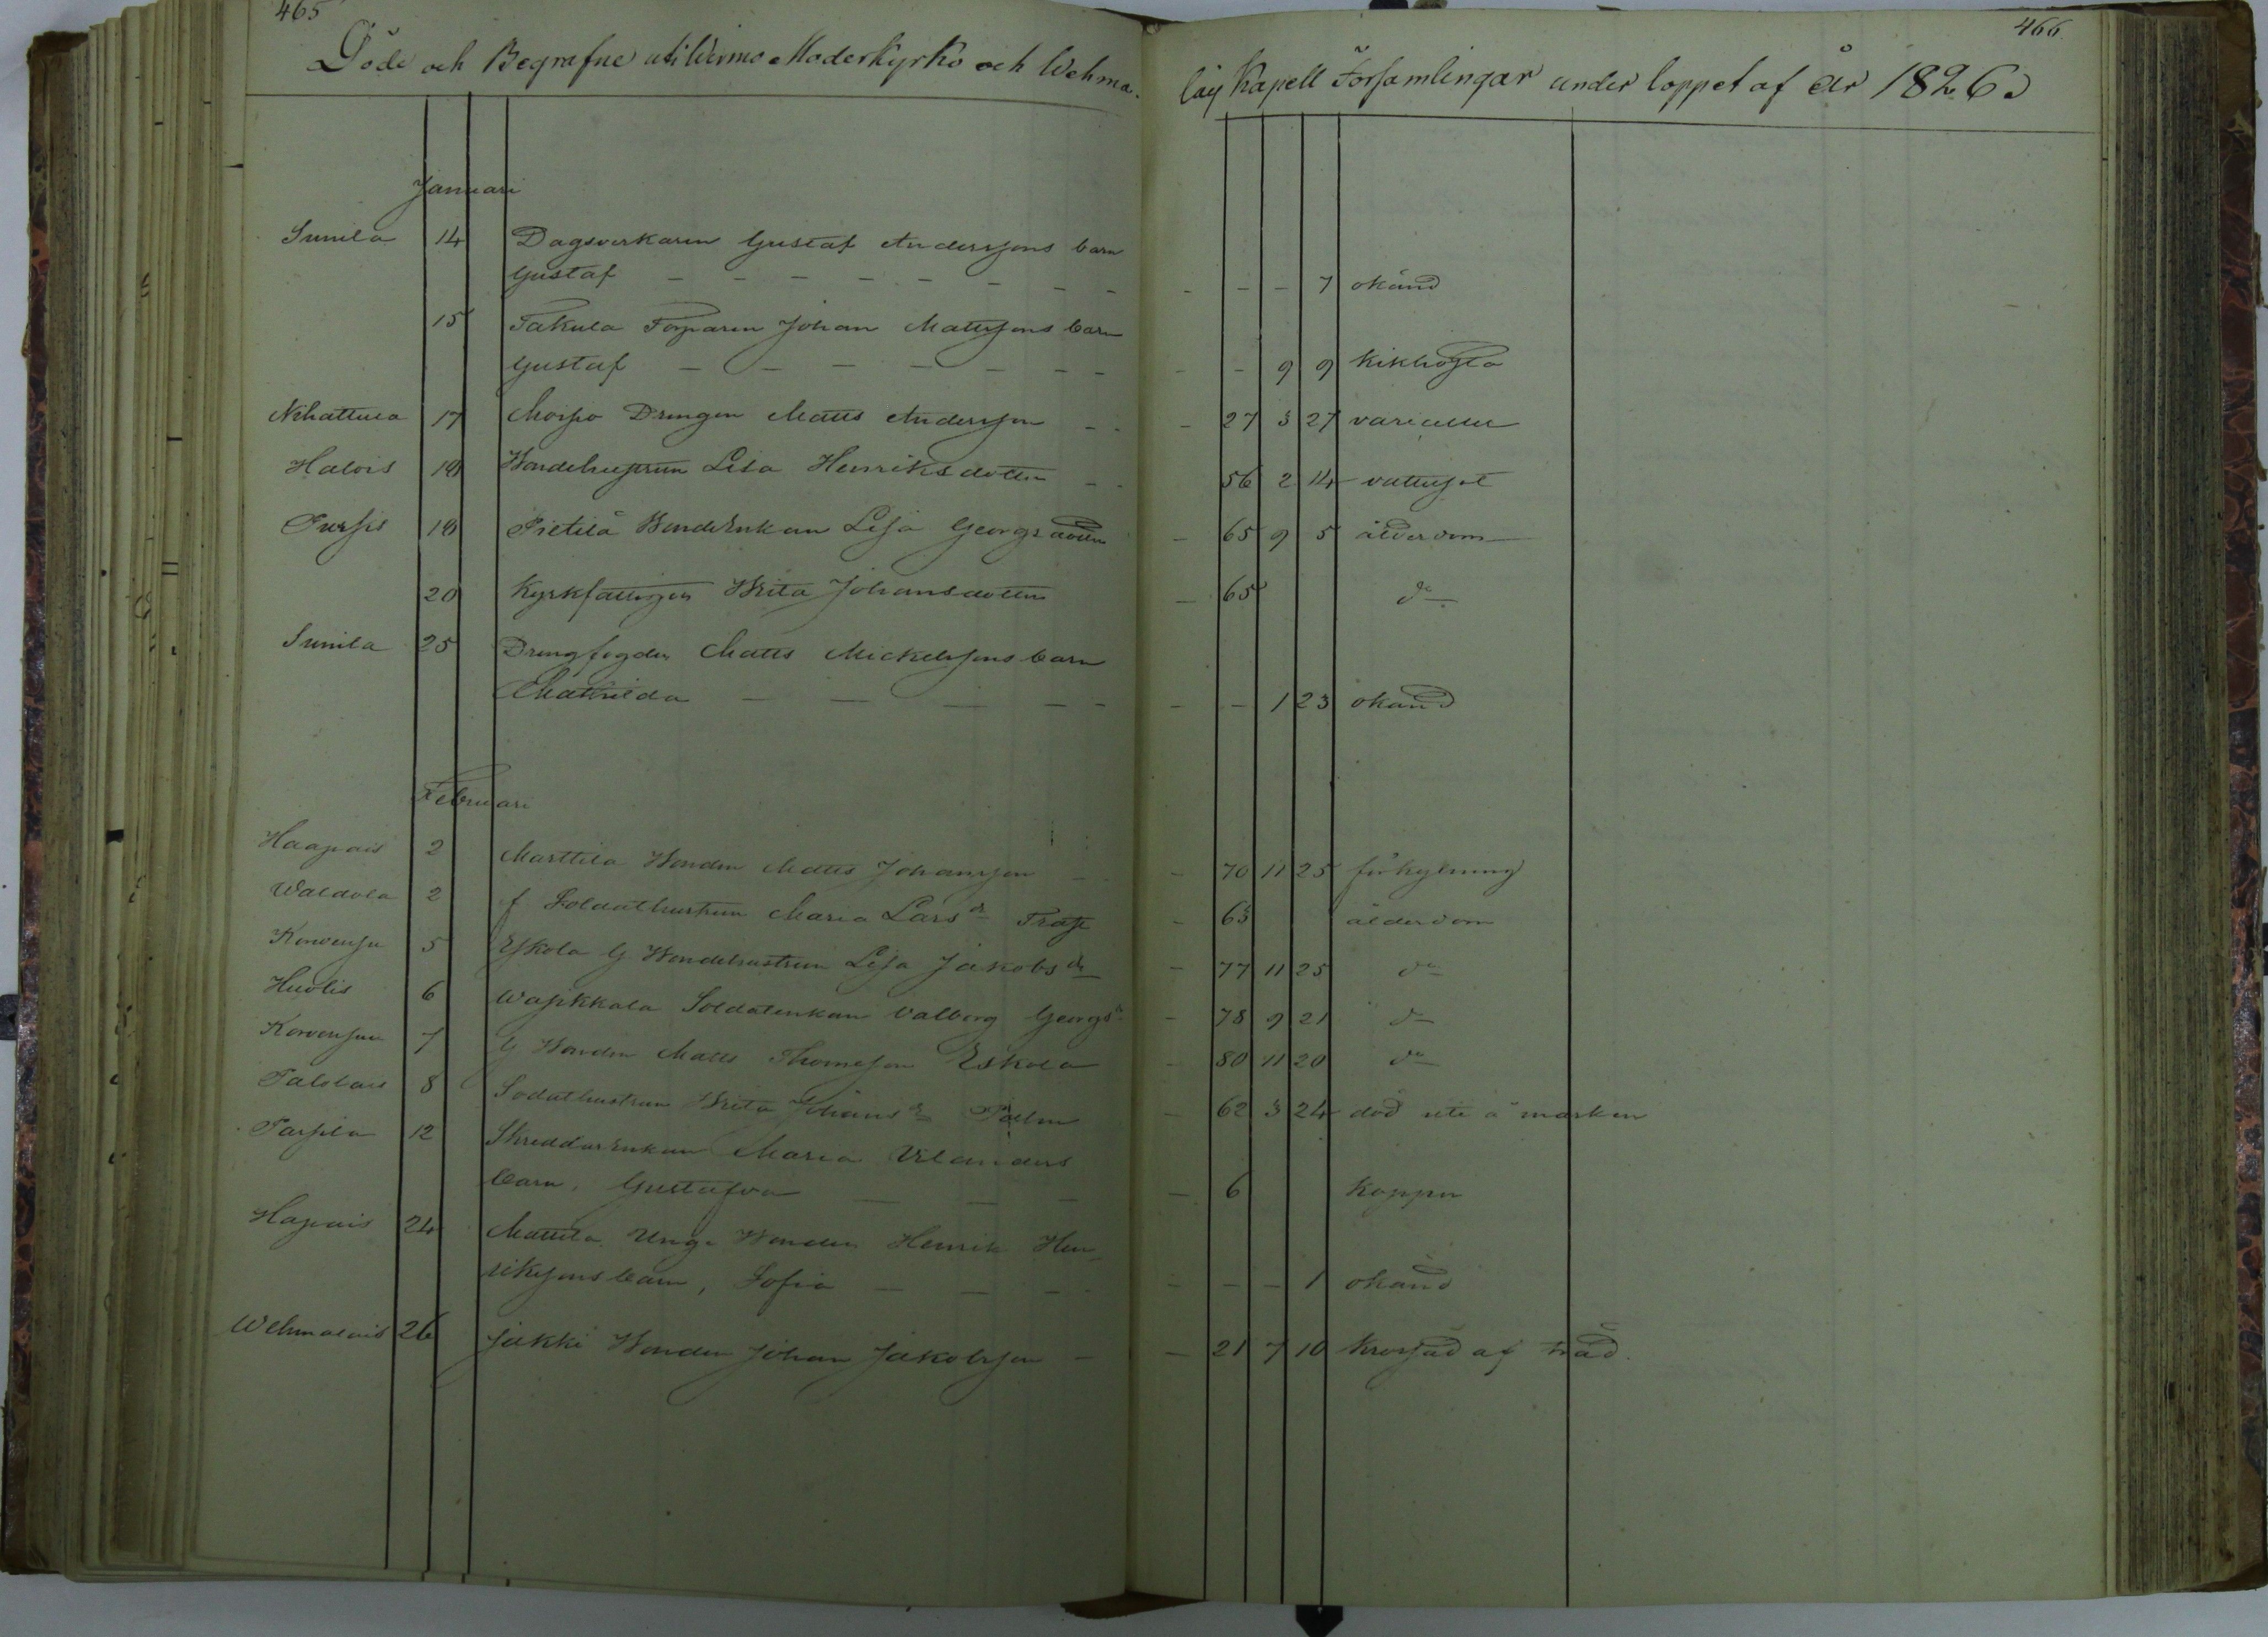 465
466
Döde och Begrafne uti Wirmo Moderkyrko och Wehma-
lais Kapell Församlingar under loppet af år 1826
Januari
Sunila 14 Dagsverkaren Gustaf Anderssons barn
Gustaf — — — — — — — 7 okänd
15 Takula Torparen Johan Mattssons barn
Gustaf — — — — — — 9 9 kikhosta
Nihattula 17 Drengen Matts Andersson - 27 3 27
Halois 18 Bondehustrun Lisa Henriksdotter - 56 2 14 vattusot
Pursis 18 Pietilä BondeEnkan Lisa Georgsdotter - 65 9 5 ålderdom
20 Kyrkfattigen Brita Johansdotter - 65 do
Sunila 25 Drengfogden Matts Mickelssons barn
Mathilda — — — — - 1 23 okänd
Februari
Haapais 2 Marttila Bonden Matts Johansson - 70 11 25 förkylning
Waldola 2 f. Soldathustrun Maria Larsdr - 63 ålderdom
5 Eskola G. Bondehustrun Lisa Jakobsdr - 77 11 25 do
Huolis 6 Soldatenkan Valborg Georgsdr - 78 9 21 do
Korvensuu 7 G Bonden Matts Thomesson Eskola - 80 11 20 do
8 Sodathustrun Brita Johansdr Palm - 62 3 24 död ute å marken
12 SkreddarEnkan Maria Vilanders
barn, Gustafva — — — 6 koppor
Hapais 24 Mattila Unge Bonden Henrik Hen-
rikssons barn, Sofia — — — - - 1 okänd
Wehmalais 26 Jakki Bonden Johan Jakobsson - 21 7 10 krossad af träd.